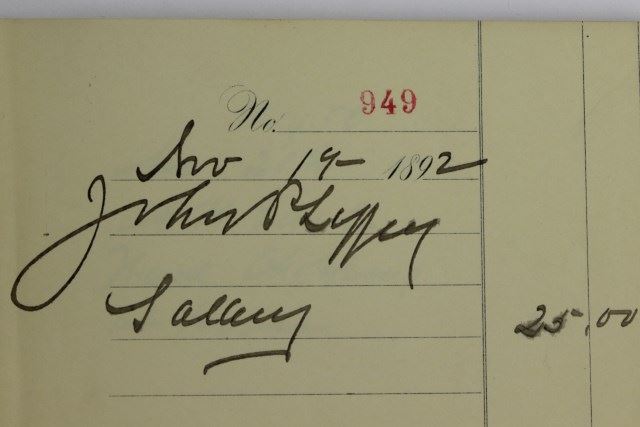 No. 949
Nov 19 1892
John P Lippey
Salary 25.00